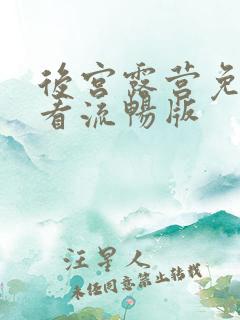 後宮露营免
看流暢版
汪星人
未经同意禁止转载